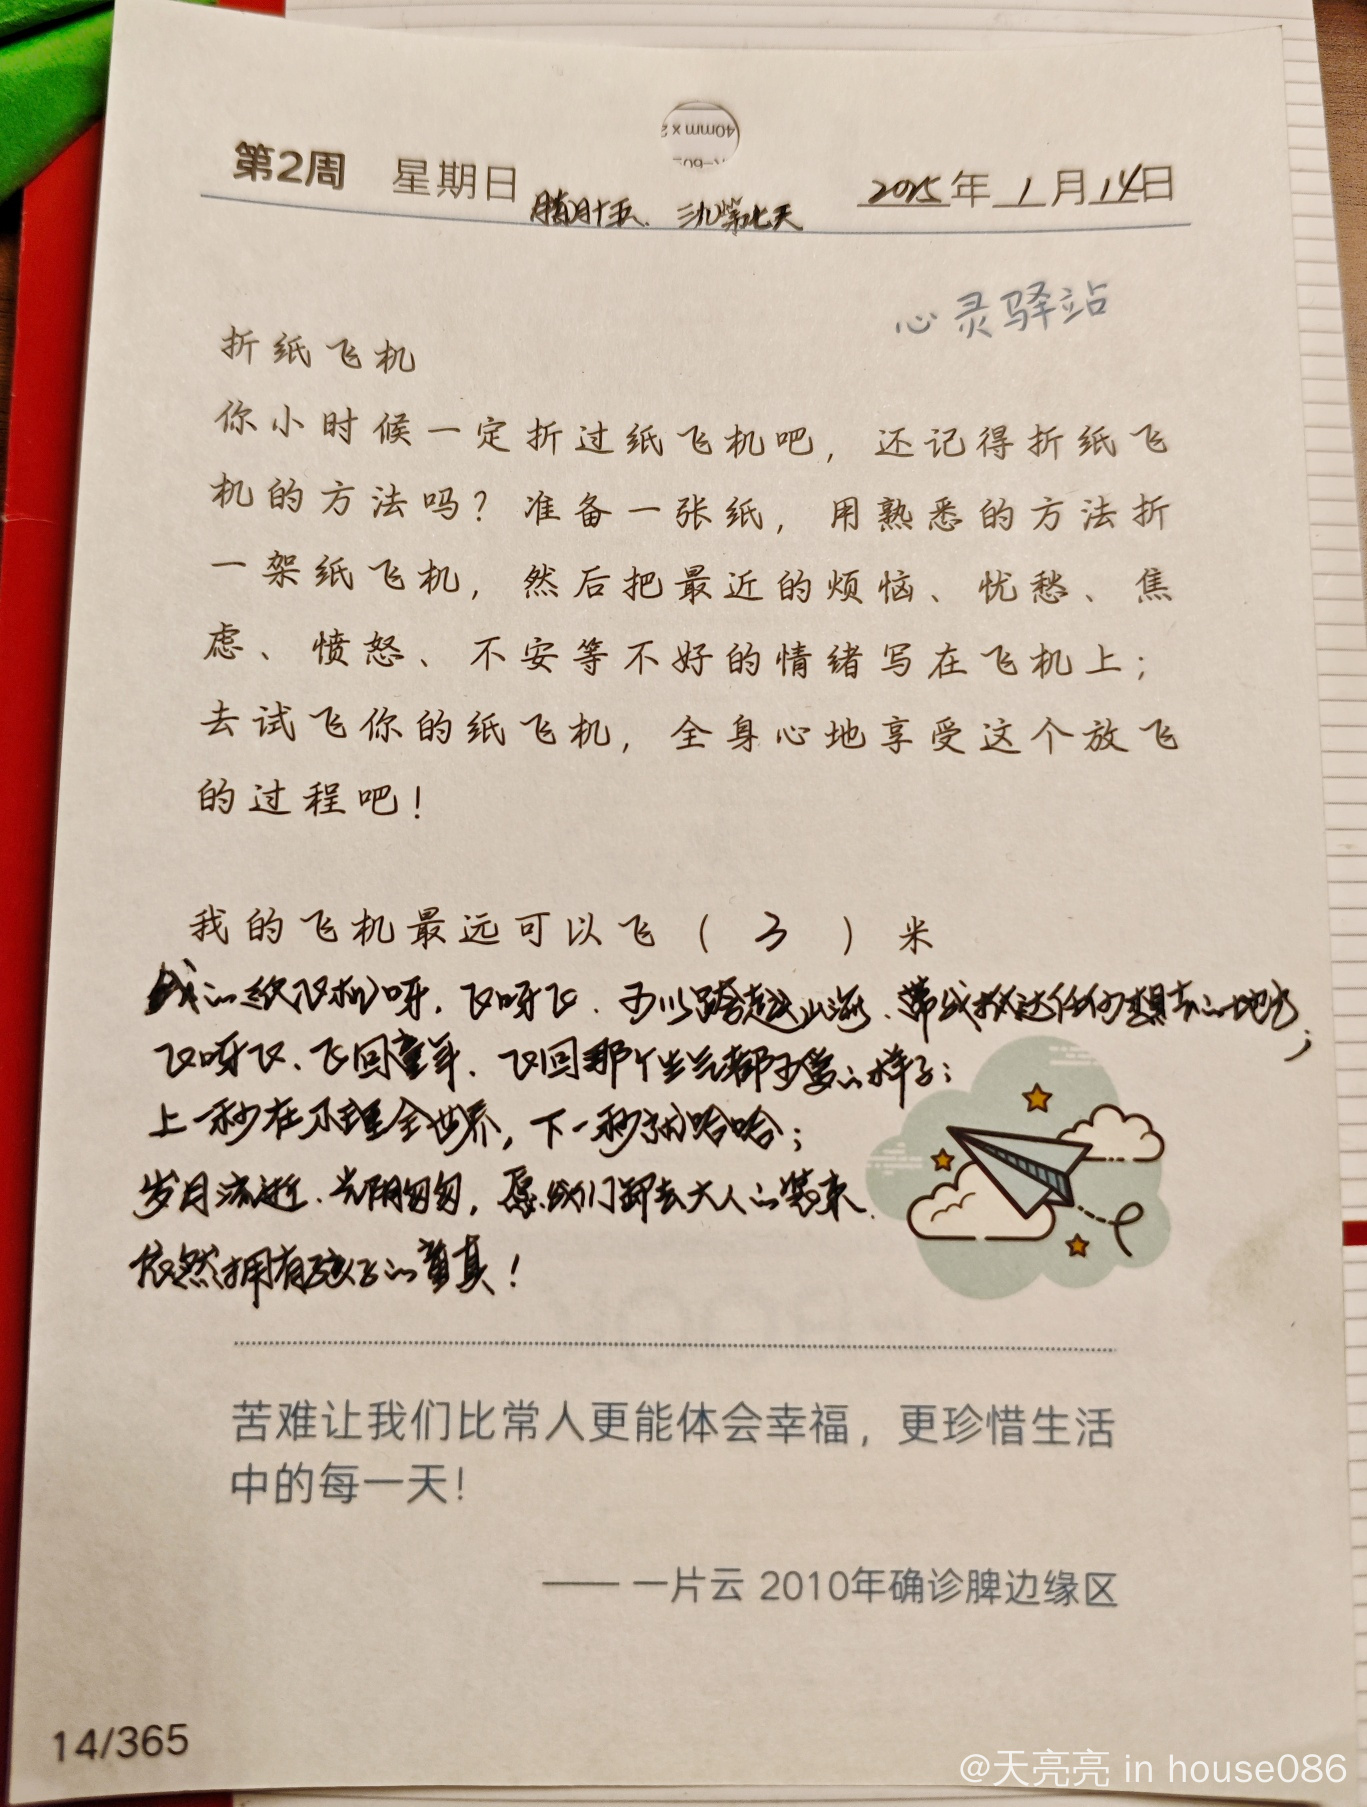 40mm x 2
第2周 星期日 腊月十五、三九第七天 2025年1月14日
心灵驿站
折纸飞机
你小时候一定折过纸飞机吧，还记得折纸飞
机的方法吗？准备一张纸，用熟悉的方法折
一架纸飞机，然后把最近的烦恼、忧愁、焦
虑、愤怒、不安等不好的情绪写在飞机上；
去试飞你的纸飞机，全身心地享受这个放飞
的过程吧！
我的飞机最远可以飞（3）米
我的纸飞机呀，飞呀飞，可以跨越山海、带我抵达任何想去的地方；
飞呀飞、飞回童年、飞回那个生气都可爱的样子；
上一秒在不理全世界，下一秒就哈哈；
岁月流逝、光阴匆匆，愿我们卸去大人的装束，
依然拥有孩子的童真！
苦难让我们比常人更能体会幸福，更珍惜生活
中的每一天！
—— 一片云 2010年确诊脾边缘区
14/365
@天亮亮 in house086